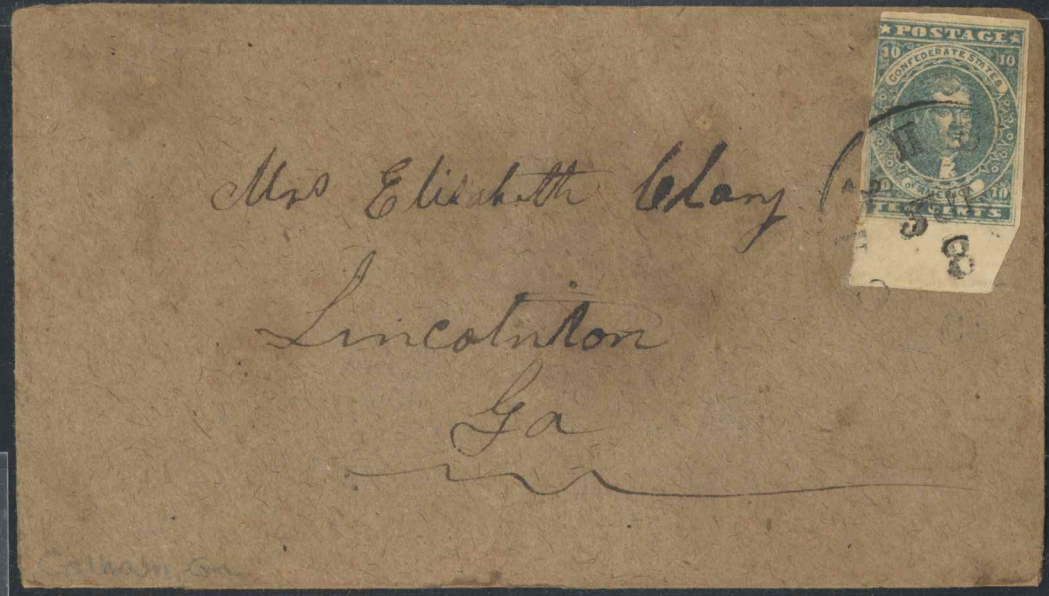 POSTAGE
10 10
CONFEDERATE STATES
10
TEN CENTS
8
Mrs Elisabeth Clary
Lincolnton
Ga